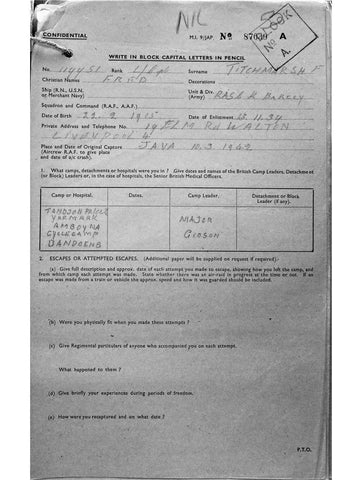 NIL
CONFIDENTIAL
M.I. 9/JAP. No 87039 A
No. Rank L/Bdr Surname TITCHMARSH F
Christian Names FRED Decorations
Ship (R.N., U.S.N. or Merchant Navy) Unit & Div. (Army)
WRITE IN BLOCK CAPITAL LETTERS IN PENCIL
Squadron and Command (R.A.F., A.A.F.)
Date of Birth 22.2.1915 Date of Enlistment 15.11.34
Private Address and Telephone No. 19 ELM RD WALTON
LIVERPOOL 4
Place and Date of Original Capture JAVA 10.3.1942
(Aircrew R.A.F. to give place and date of a/c crash).
1. What camps, detachments or hospitals were you in ? Give dates and names of the British Camp Leaders, Detachment or (or Block) Leaders or, in the case of hospitals, the Senior British Medical Officers.
Camp or Hospital. Dates. Camp Leader. Detachment or Block Leader (if any).
AMBOYNA
CYCLECAMP
BANDOENG
MAJOR
GIBSON
2. ESCAPES OR ATTEMPTED ESCAPES. (Additional paper will be supplied on request if required)—
(a) Give full description and approx. date of each attempt you made to escape, showing how you left the camp, and from which camp each attempt was made. State whether there was an air-raid in progress at the time or not. If an escape was made from a train or vehicle the approx. speed and how it was guarded should be included.
(b) Were you physically fit when you made these attempts ?
(c) Give Regimental particulars of anyone who accompanied you on each attempt.
What happened to them ?
(d) Give briefly your experiences during periods of freedom.
(e) How were you recaptured and on what date ?
P.T.O.